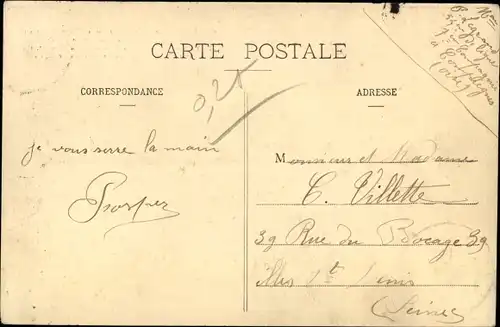 CARTE POSTALE
CORRESPONDANCE
ADRESSE
0,25
je vous serre la main
Prosper
Monsieur et Madame
C. Villette
39 Rue du Bocage 39
Illes St Denis
(Seine)
7e Compagnie
à Compiègne
(Oise)